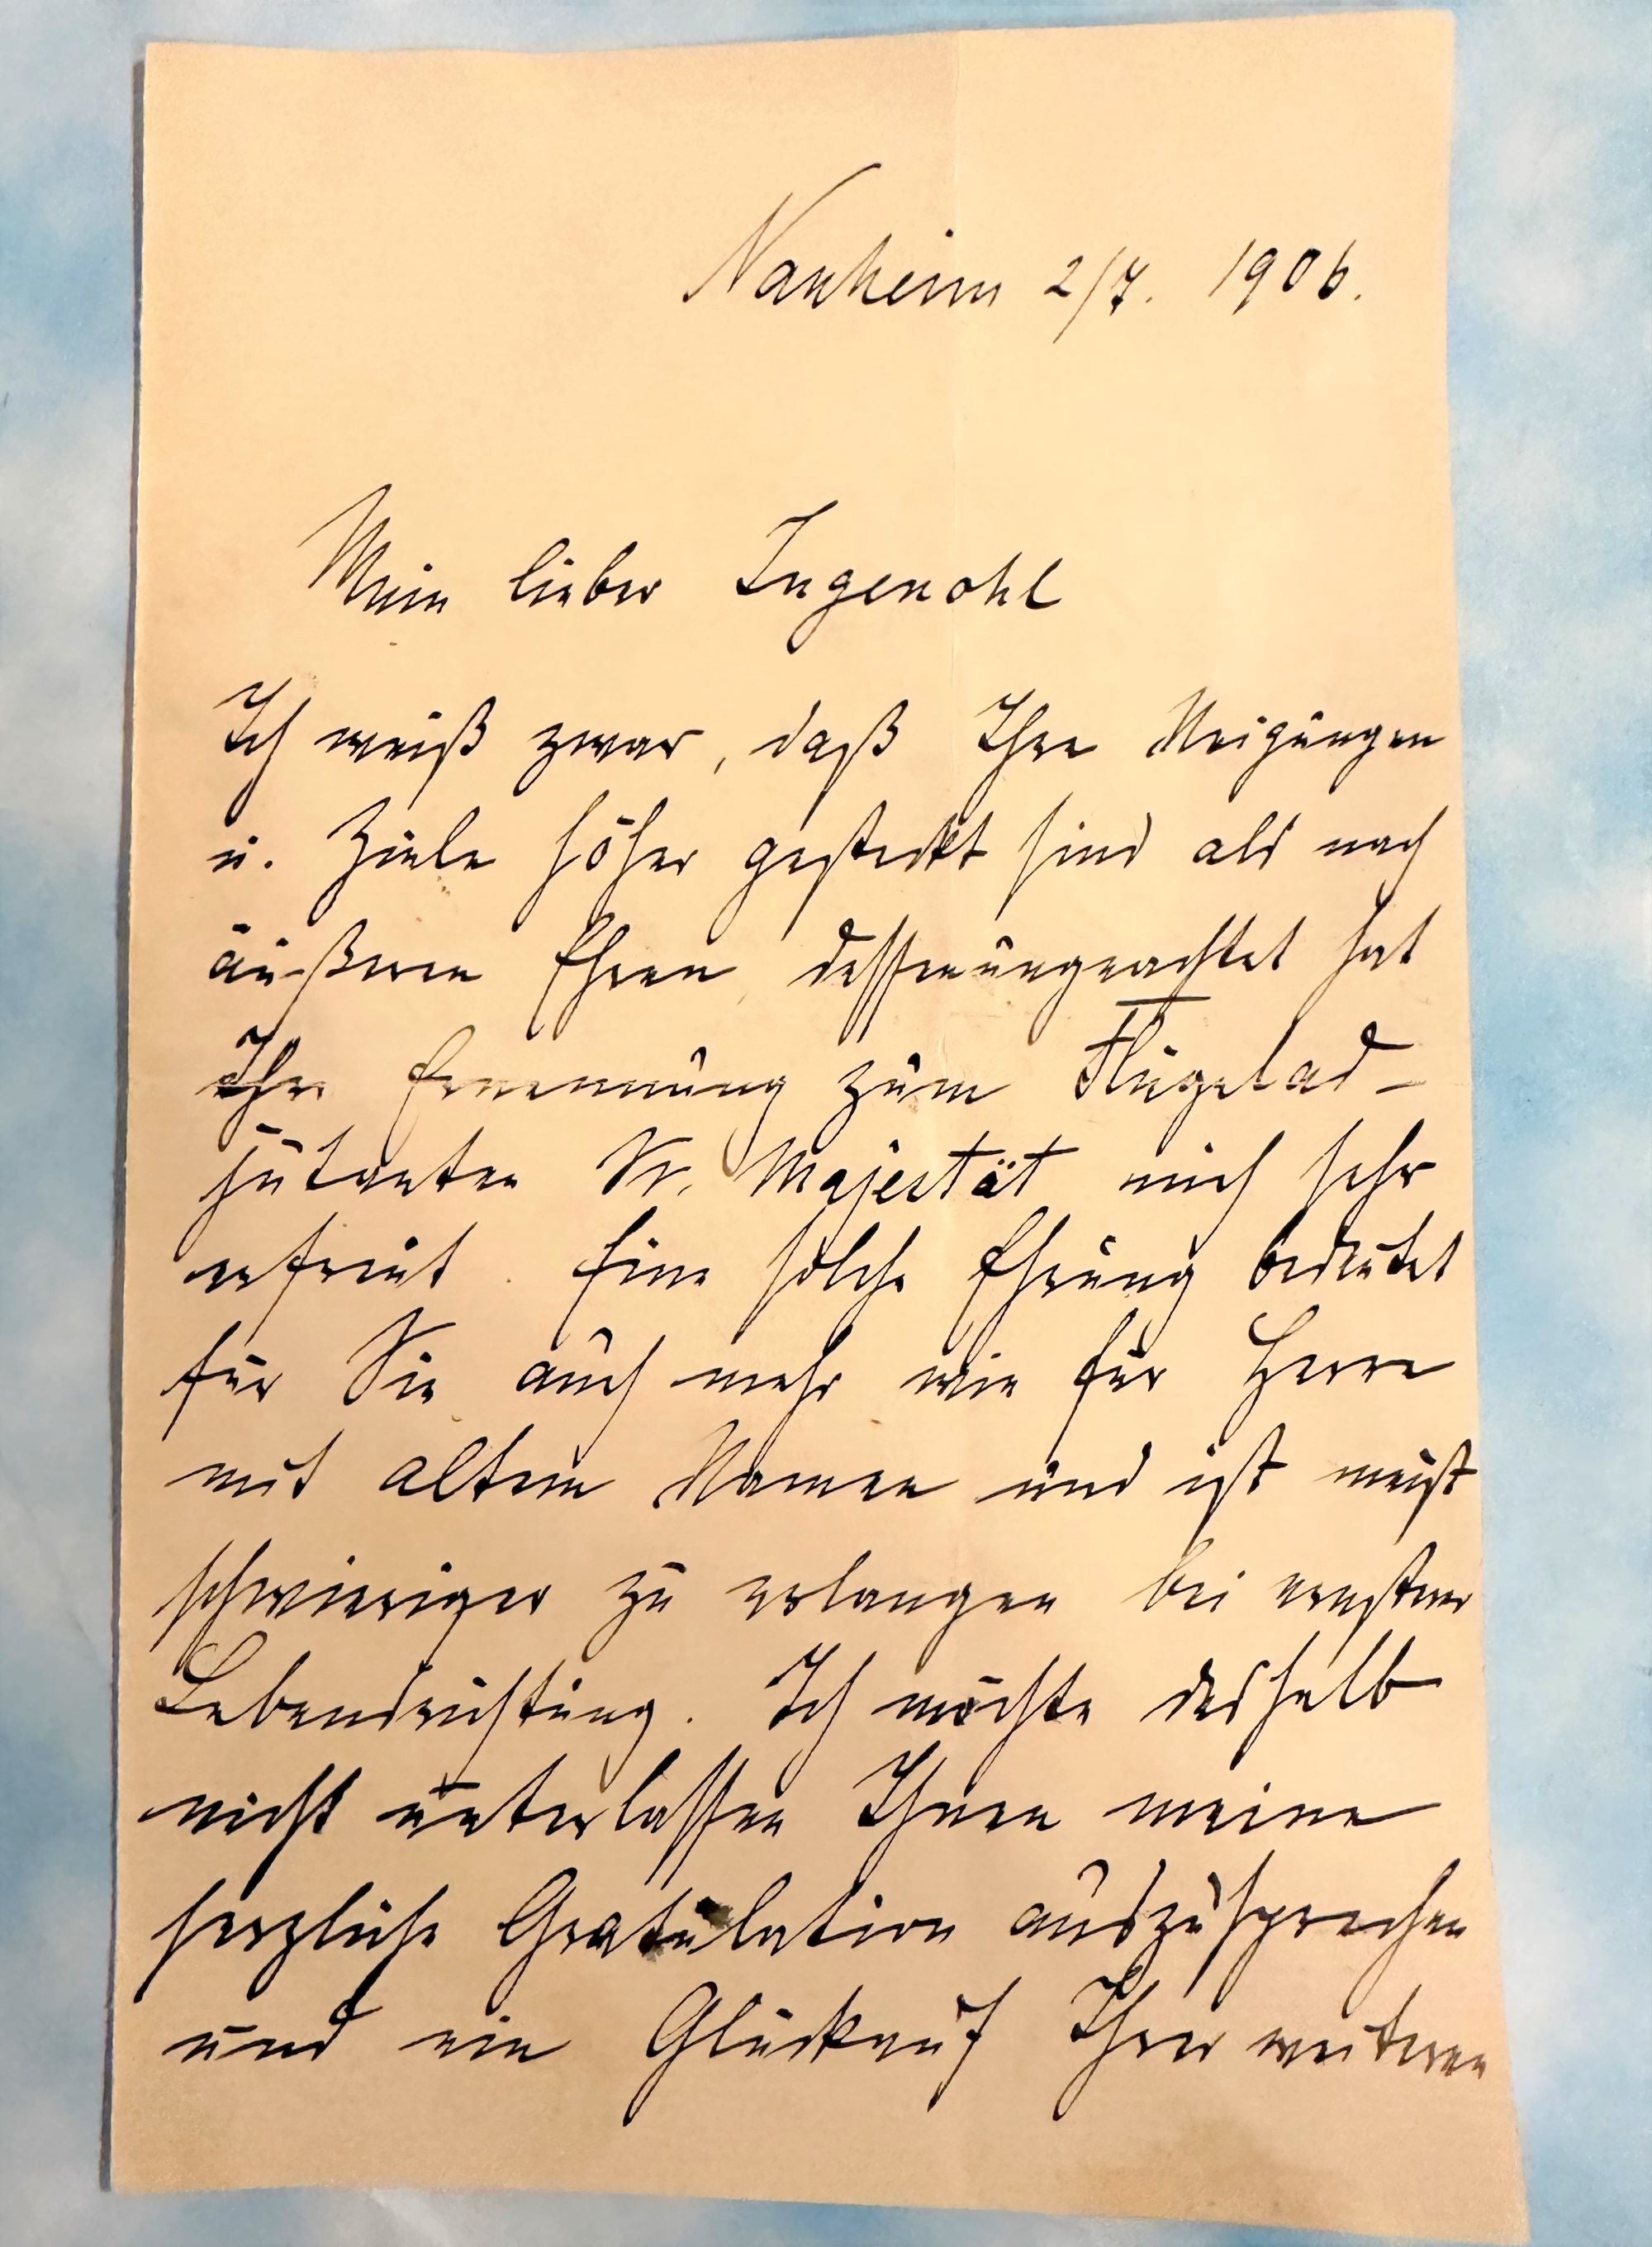 Nauheim 2/7. 1906.
Mein lieber Ingenohl
Ich weiß zwar, daß Ihre Neigungen
u. Ziele höher gesteckt sind als nach
äußeren Ehren, dessenungeachtet hat
Ihre Ernennung zum Flügelad-
jutanten Sr. Majestät mich sehr
erfreut. Eine solche Ehrung bedeutet
für Sie auch mehr wie für Herrn
mit altem Namen und ist meist
schwieriger zu erlangen bei ernsterer
Lebensrichtung. Ich möchte deshalb
nicht unterlassen Ihnen meine
herzliche Gratulation auszusprechen
und ein Glückauf Ihrer weiteren